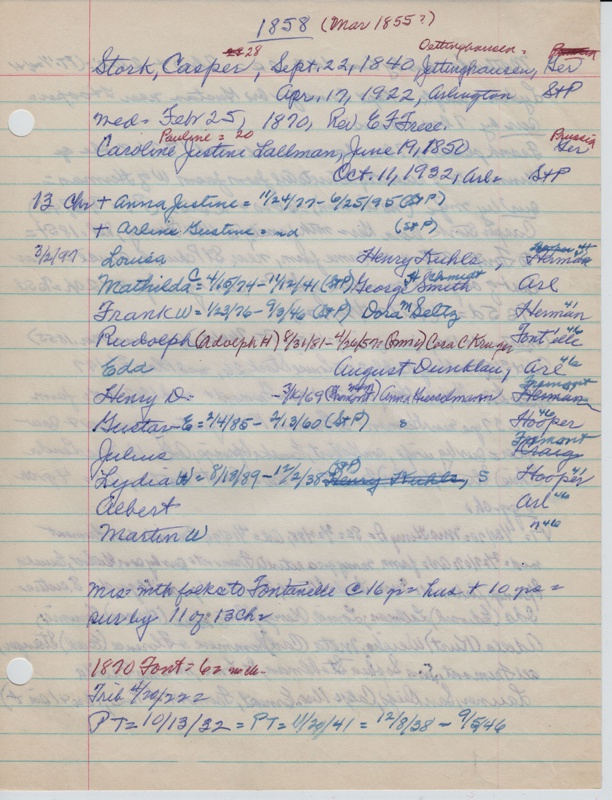 1858 (Mar 1855?)
28 Oettinghausen =
Stork, Casper, Sept. 22, 1840 Jettinghausen, Ger
Apr. 17, 1922, Arlington StP
med = Feb 25, 1870, Rev E F Frese.
Pauline = 20 Prussia
Caroline Justine Lallman, June 19, 1850 Ger
Oct. 11, 1932, Arl = StP
13 Chr + Anna Justine = 11/24/77 - 6/25/95 (StP)
+ Arline Gustine = nd (StP)
3/2/97 Louisa Henry Kuhls, Herman
Mathilda C = 4/15/74 - 11/12/41 (StP) George H Schmidt Smith Arl
Frank W = 1/23/76 - 9/3/46 (StP) Dora M Seltz Herman 41
Rudolph (Adolph H) 8/31/81 - 4/26/57 Cora C Kruger Font'elle 46
Eda August Dunklau, Arl 46
Fremont
Henry D = - 3/16/69 (Fremont) Anna Herman
Gustav E = 2/4/85 - 2/13/60 (StP) s Hooper 46
Julius Fremont Kraig
Lydia W = 8/13/89 - 12/2/38 (StP) Henry Kuhls, S Hooper
Albert Arl 46
Martin W " 46
Mrs = with folks to Fontanelle @ 16 yr = hus + 10 yrs =
sur by 11 of 13 Ch =
1870 Font = 62
Trib 4/20/22 =
PT = 10/13/32 = PT = 11/20/41 = 12/8/38 - 9/5/46